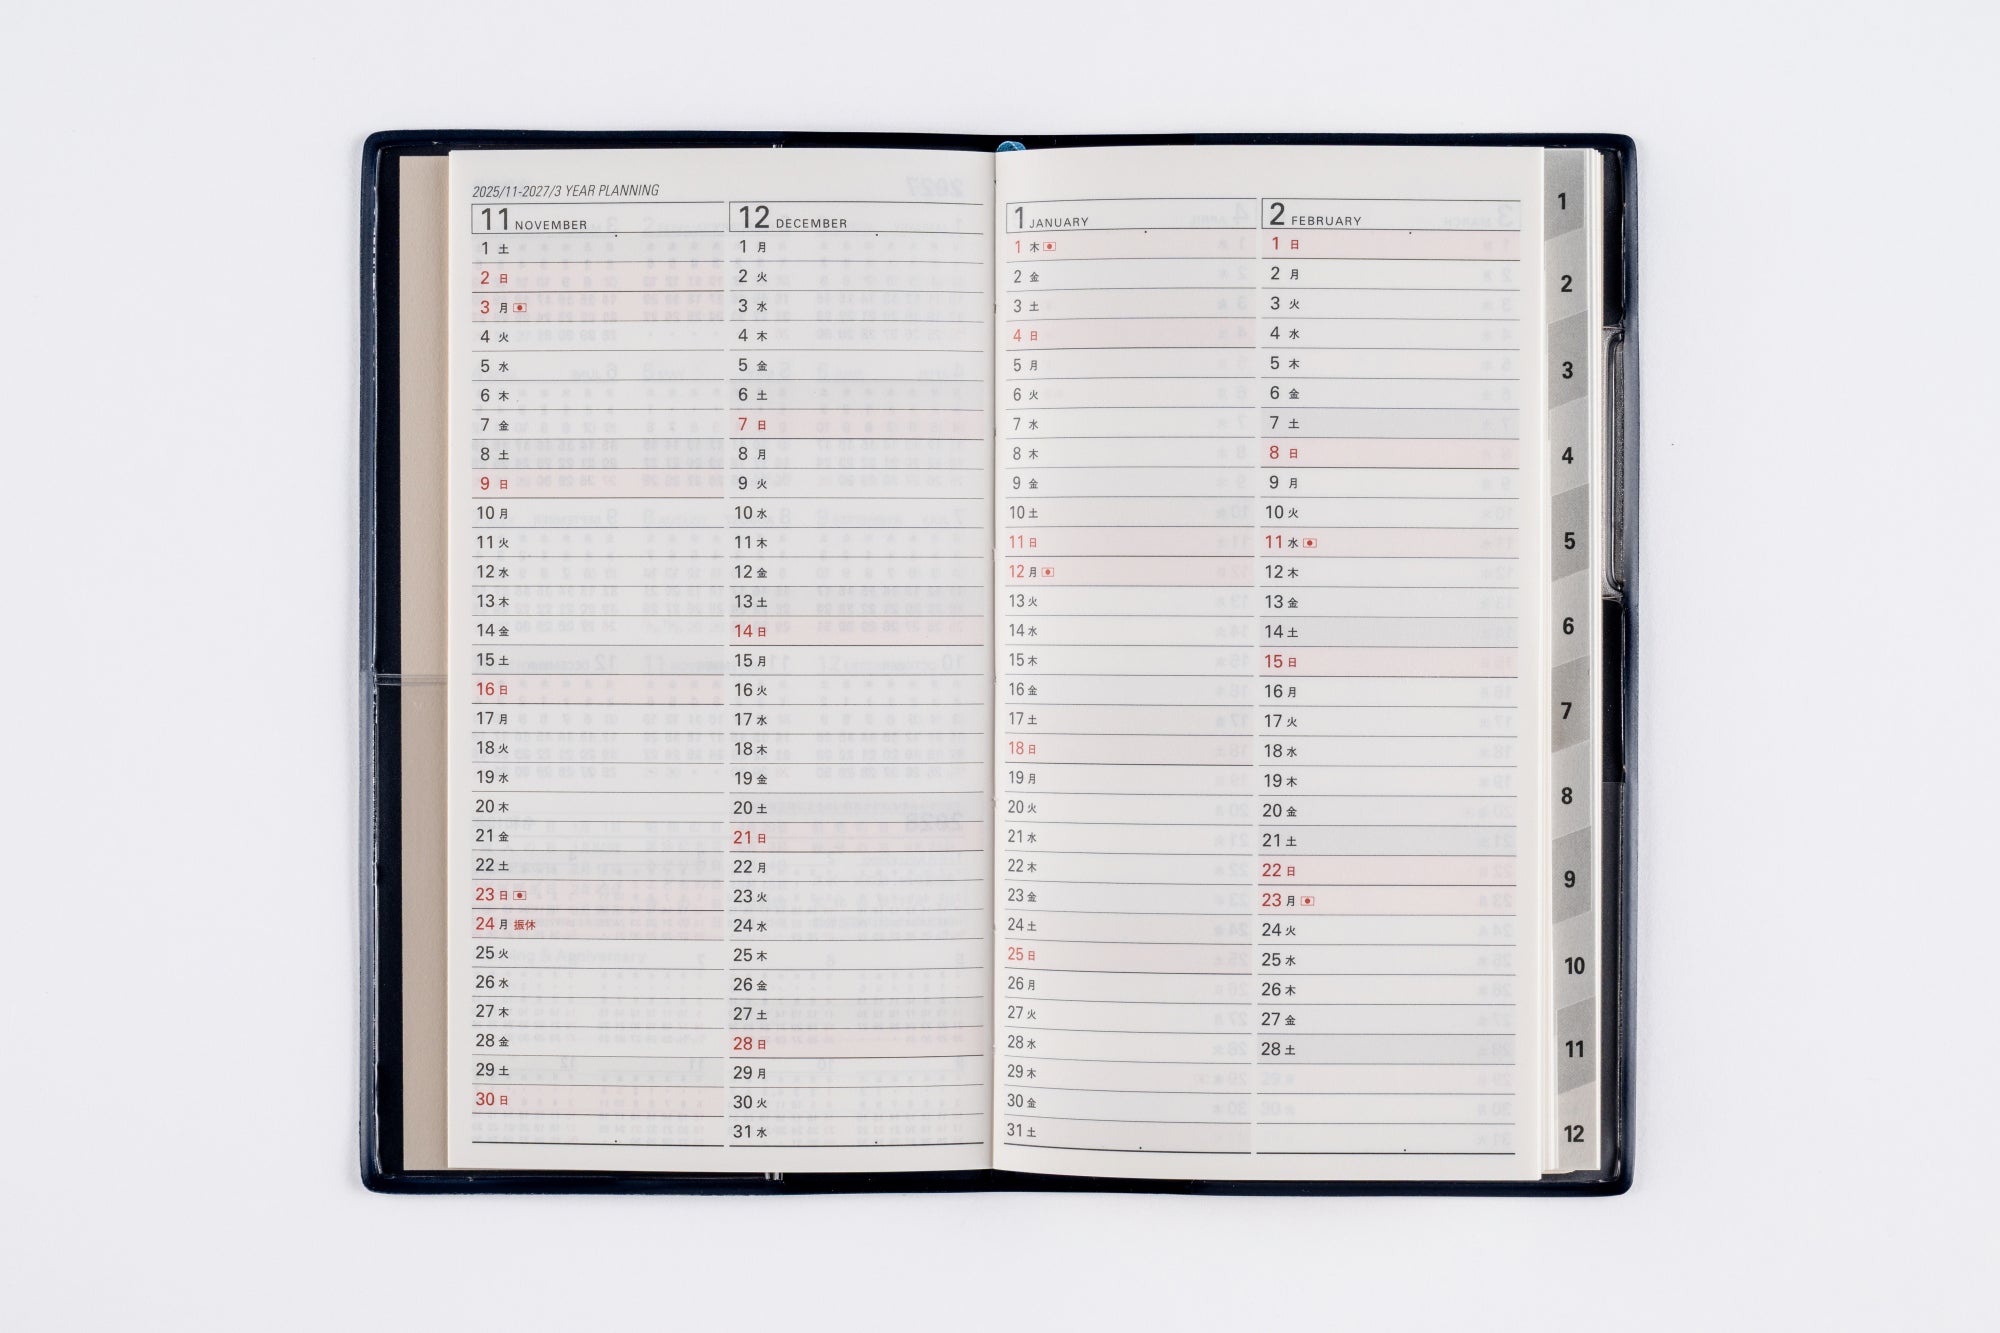 2025/11-2027/3 YEAR PLANNING
11 NOVEMBER
1 土
2 日
3 月
4 火
5 水
6 木
7 金
8 土
9 日
10 月
11 火
12 水
13 木
14 金
15 土
16 日
17 月
18 火
19 水
20 木
21 金
22 土
23 日
24 月 振休
25 火
26 水
27 木
28 金
29 土
30 日
12 DECEMBER
1 月
2 火
3 水
4 木
5 金
6 土
7 日
8 月
9 火
10 水
11 木
12 金
13 土
14 日
15 月
16 火
17 水
18 木
19 金
20 土
21 日
22 月
23 火
24 水
25 木
26 金
27 土
28 日
29 月
30 火
31 水
1 JANUARY
1 木
2 金
3 土
4 日
5 月
6 火
7 水
8 木
9 金
10 土
11 日
12 月
13 火
14 水
15 木
16 金
17 土
18 日
19 月
20 火
21 水
22 木
23 金
24 土
25 日
26 月
27 火
28 水
29 木
30 金
31 土
2 FEBRUARY
1 日
2 月
3 火
4 水
5 木
6 金
7 土
8 日
9 月
10 火
11 水
12 木
13 金
14 土
15 日
16 月
17 火
18 水
19 木
20 金
21 土
22 日
23 月
24 火
25 水
26 木
27 金
28 土
1
2
3
4
5
6
7
8
9
10
11
12